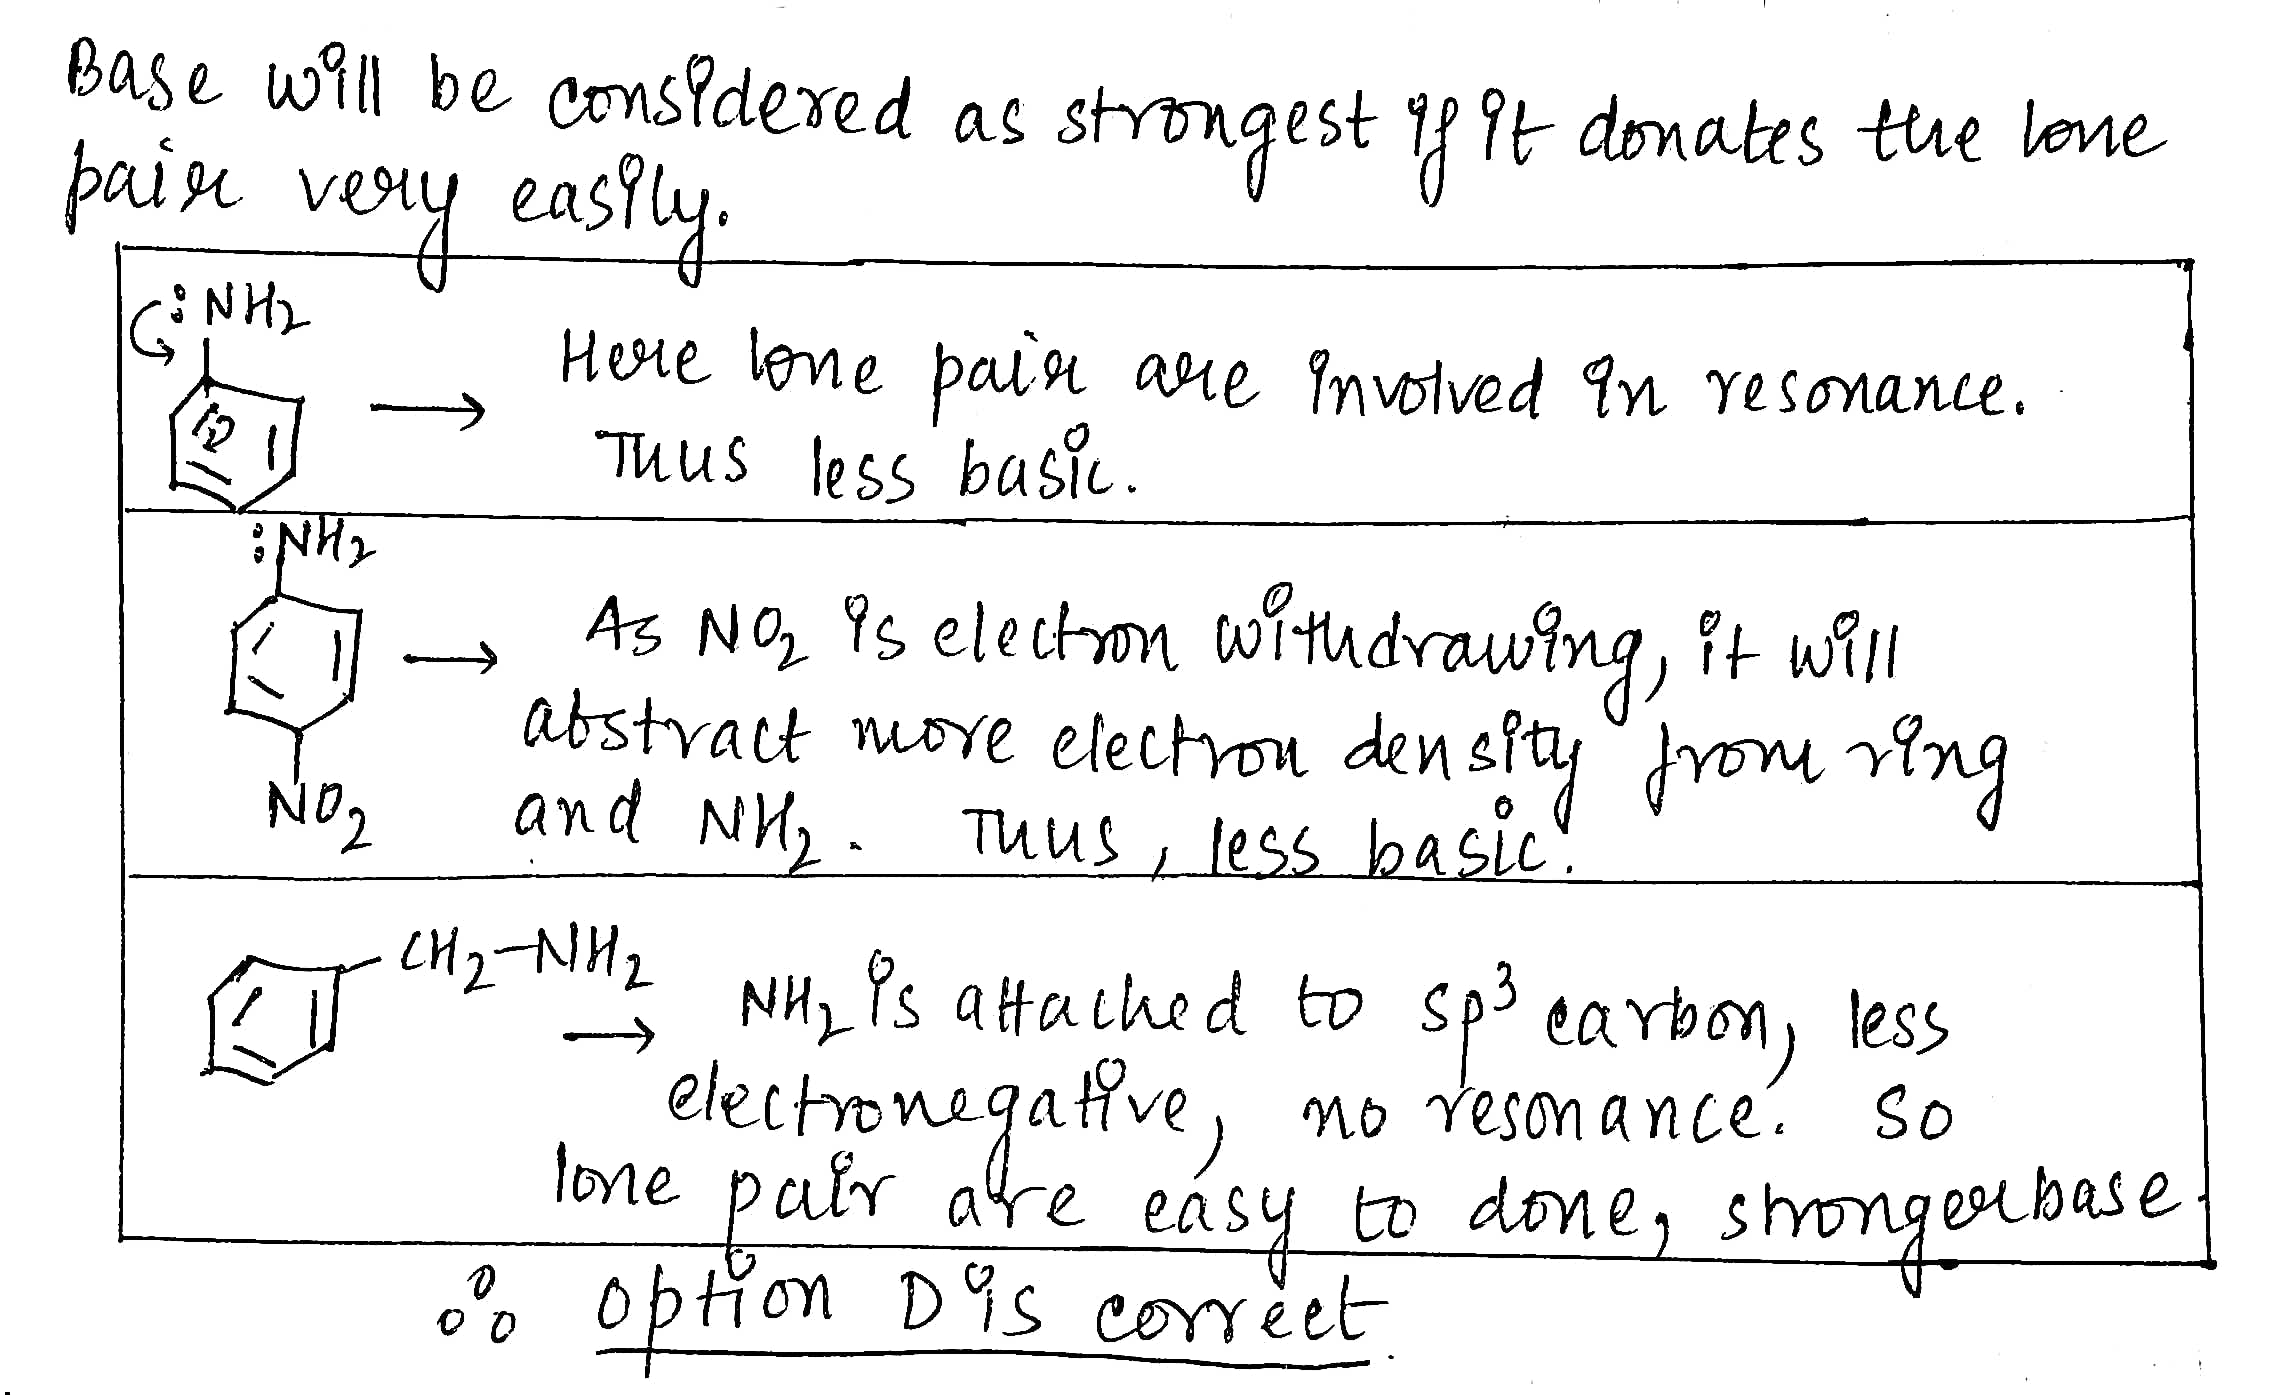 Base will be considered as strongest if it donates the lone
pair very easily.
:NH2
Here lone pair are involved in resonance.
Thus less basic.
:NH2
As NO2 is electron withdrawing, it will
abstract more electron density from ring
NO2
and NH2. Thus, less basic.
CH2-NH2
NH2 is attached to sp³ carbon, less
electronegative, no resonance. So
lone pair are easy to done, stronger base.
∴ option D is correct.